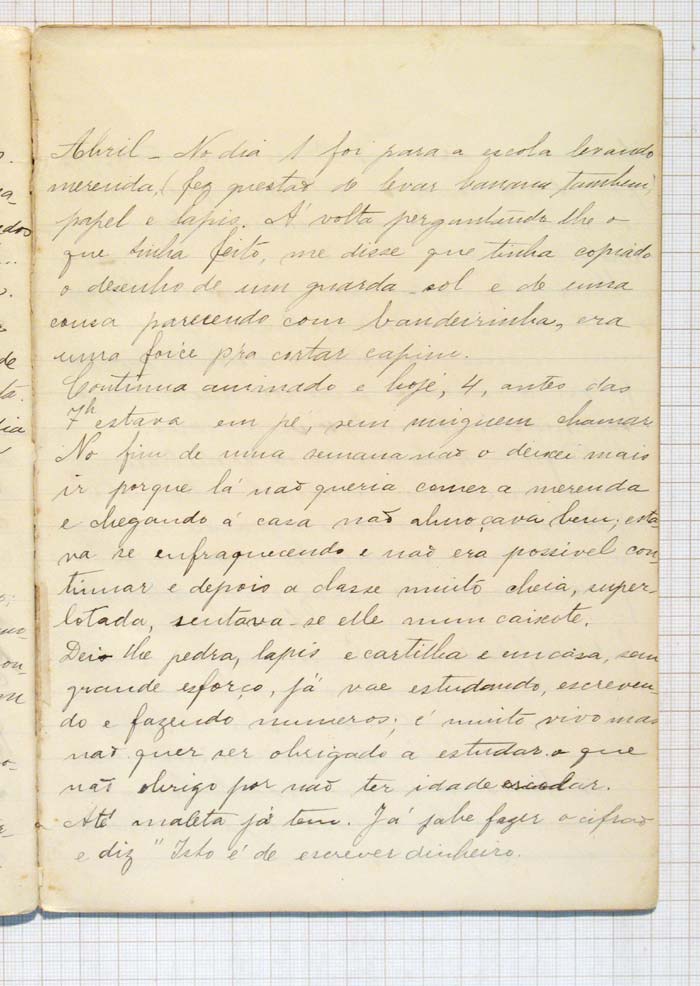 Abril - No dia 1 foi para a escola levando
merenda, (fez questão de levar banana tambem)
papel e lapis. Á volta perguntando lhe o
que tinha feito, me disse que tinha copiado
o desenho de um guarda-sol e de uma
cousa parecendo com bandeirinha, era
uma foice p'ra cortar capim.
Continua animado e hoje, 4, antes das
7h estava em pé, sem ninguem chamar.
No fim de uma semana não o deixei mais
ir porque lá não queria comer a merenda
e chegando á casa não almoçava bem; esta-
va se enfraquecendo e não era possivel con-
tinuar e depois a classe muito cheia, super-
lotada, sentava-se elle num caixote.
Dei lhe pedra, lapis e cartilha e em casa, sem
grande esforço, já vae estudando, escreven-
do e fazendo numeros; é muito vivo mas
não quer ser obrigado a estudar o que
não obrigo por não ter idade escolar.
Até maleta já tem. Já sabe fazer o cifrão
e diz "Isto é de escrever dinheiro.